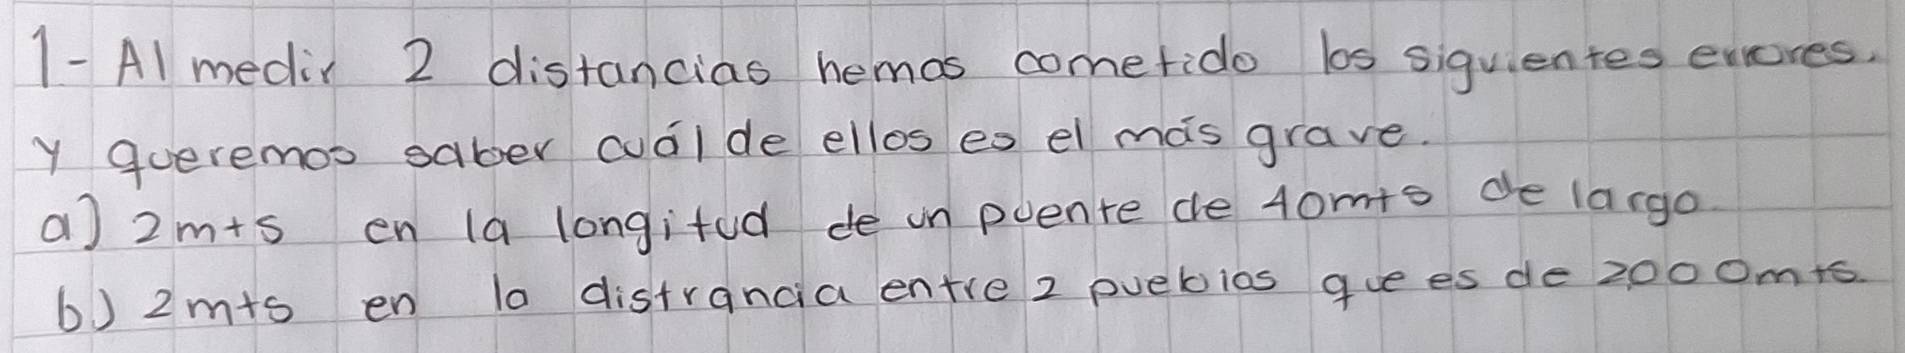 1- Al medir 2 distancias hemos cometido los siguientes errores.
y queremos saber cuál de ellos es el más grave.
a) 2mts en la longitud de un puente de 40mts de largo
b) 2mts en la distrancia entre 2 pueblos que es de 2000mts.